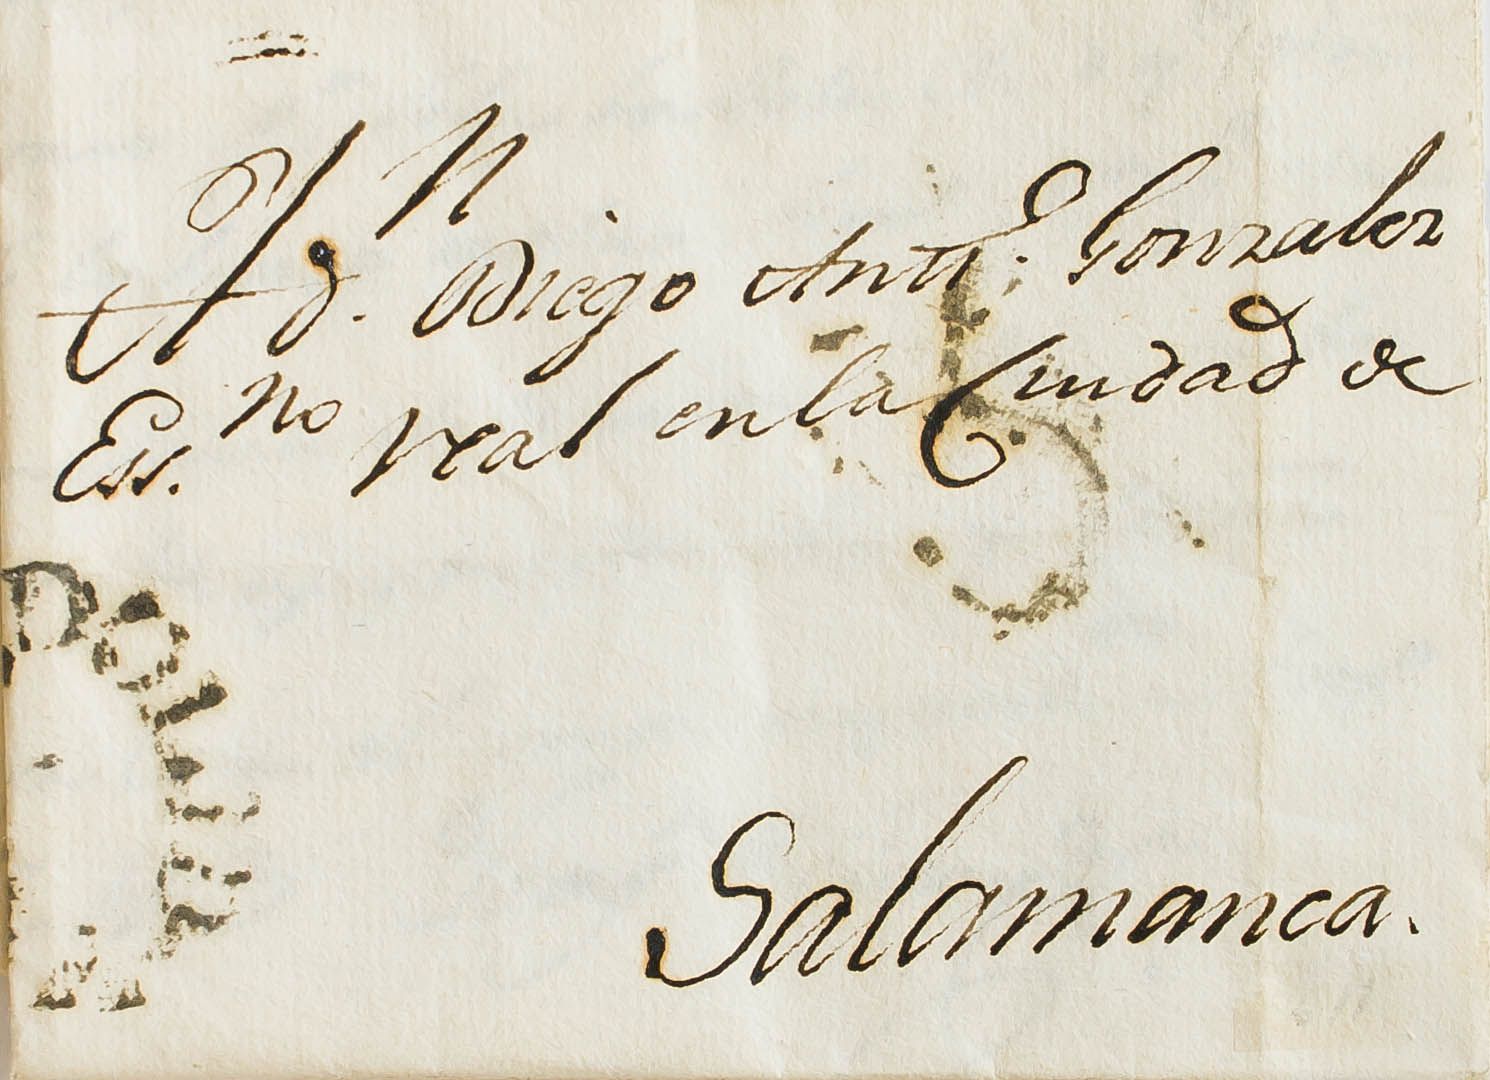 A d.n Diego Anto. Gonzalez
Ess.no real en la Ciudad de
Salamanca.
5